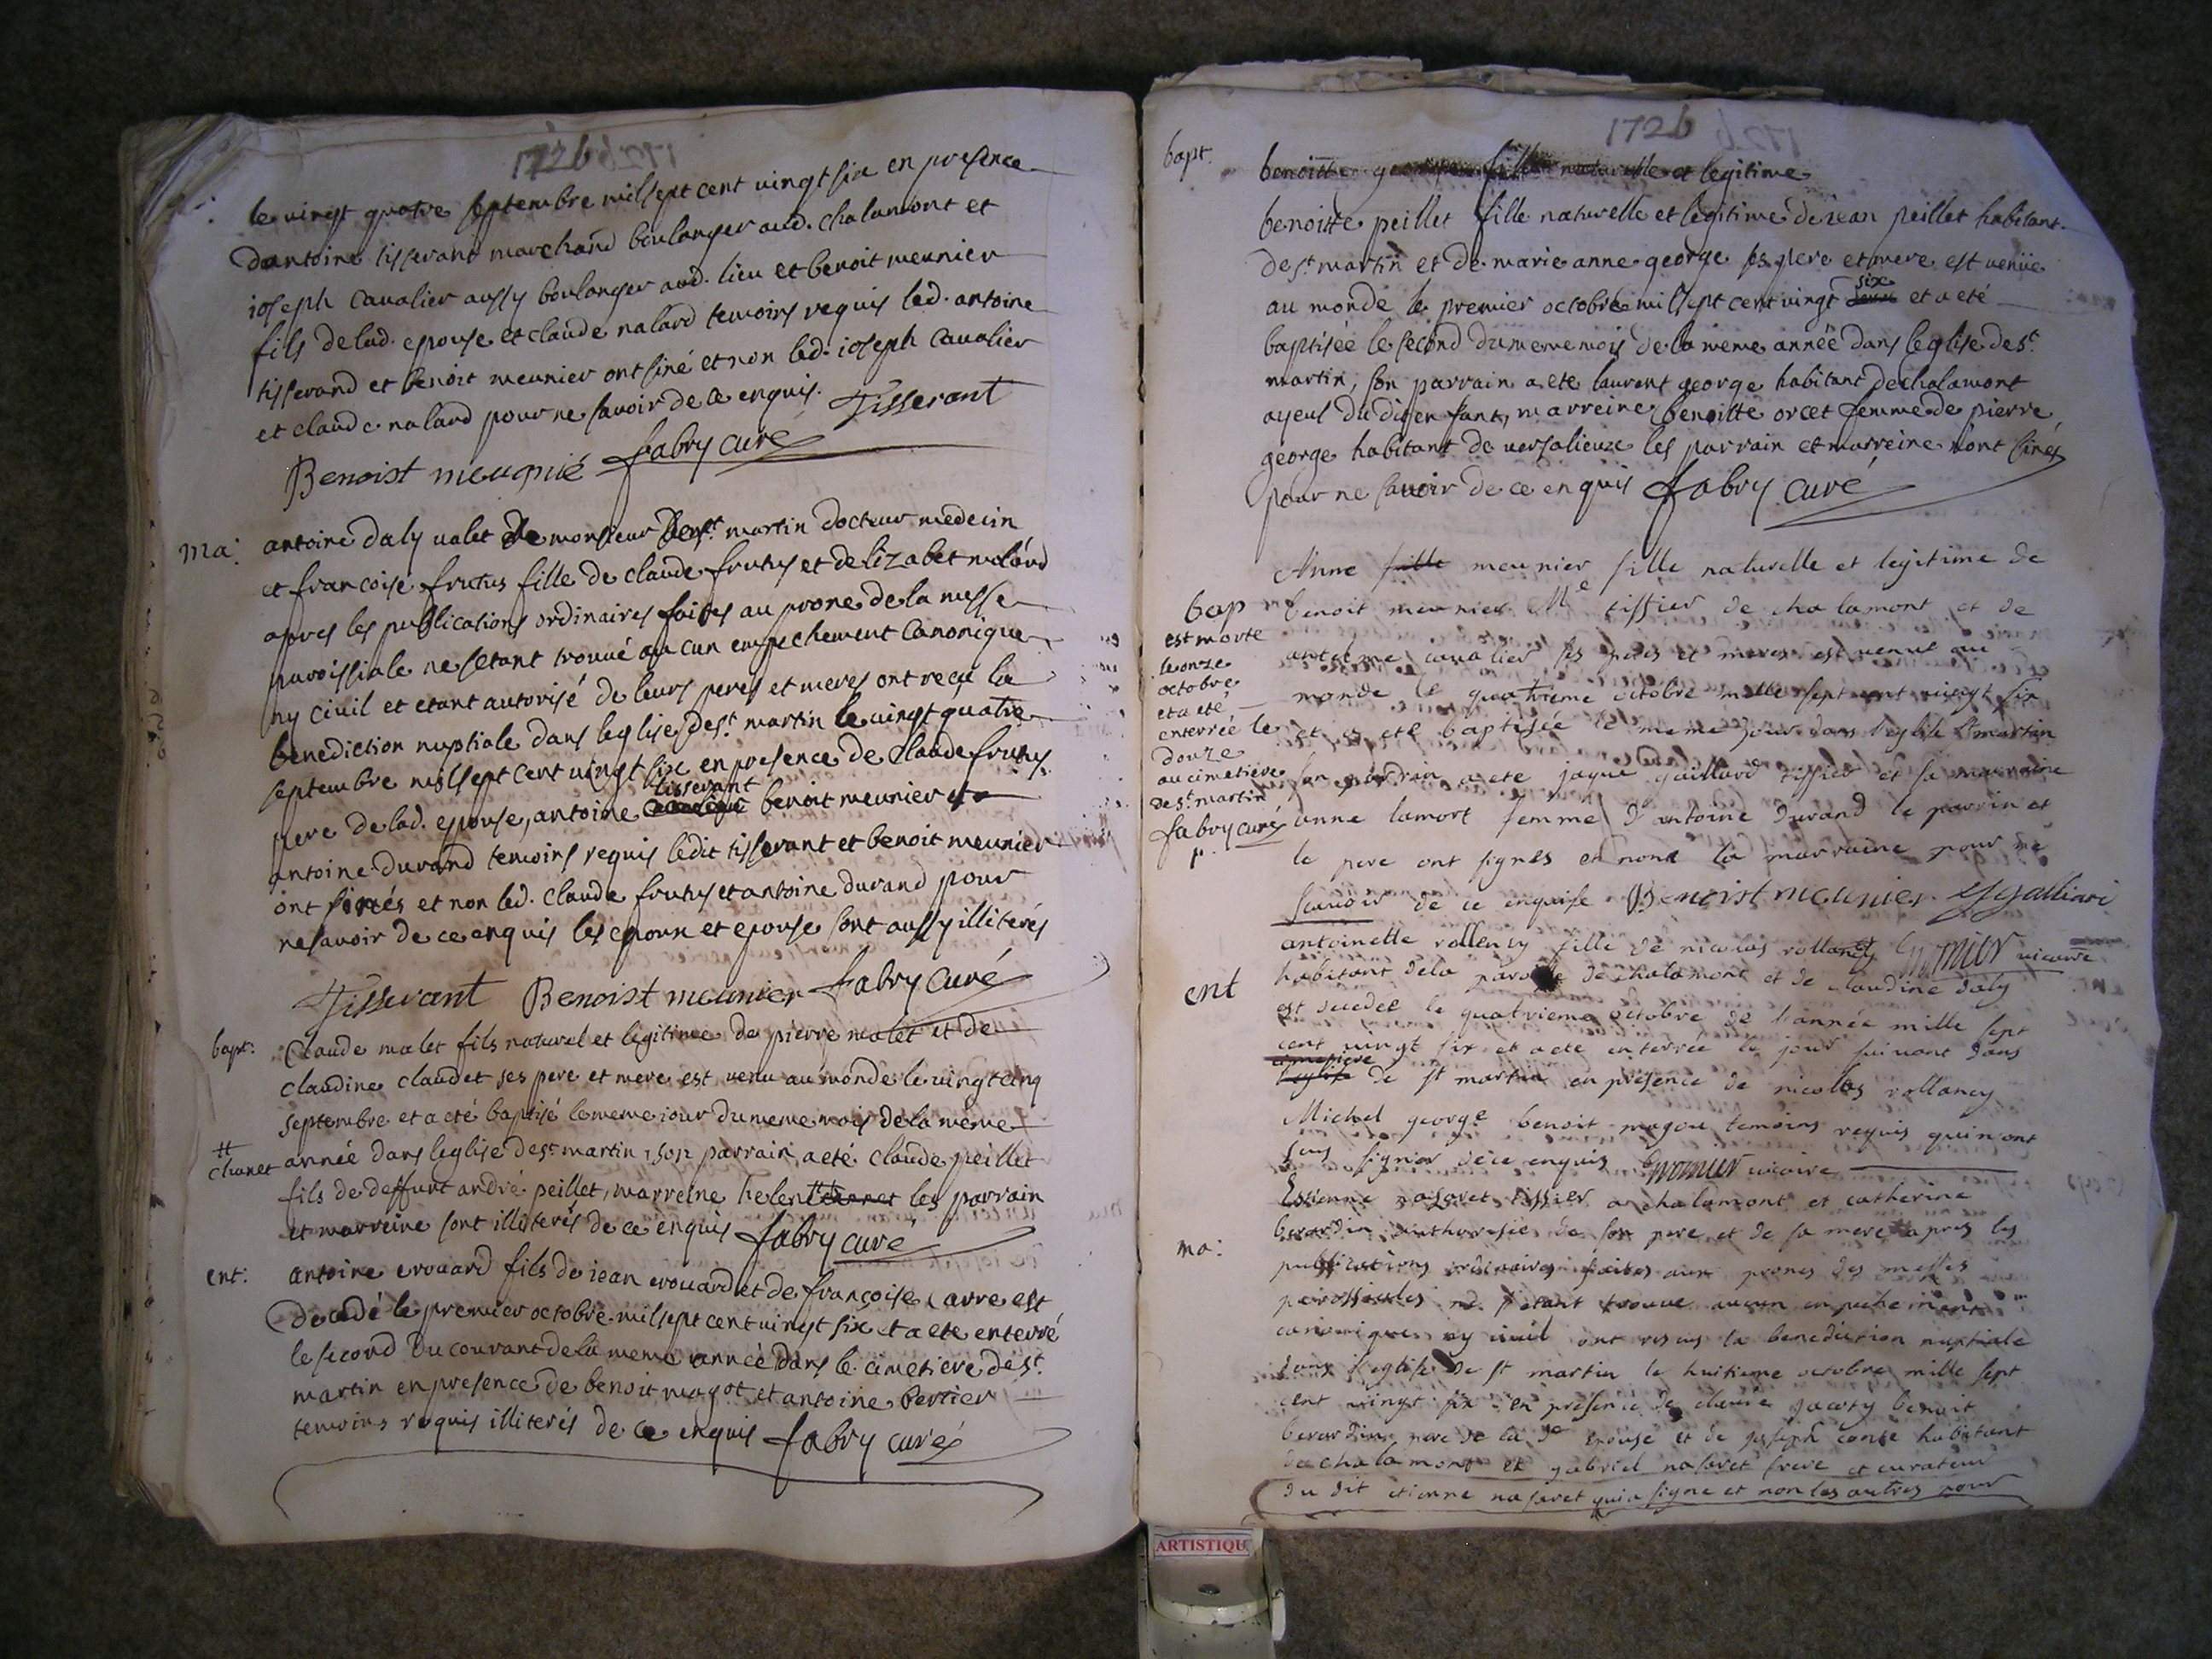 1726
le vingt quatre septembre mil sept cent vingt six en presence
dantoine tisserant marchand boulanger aud. chalamont et
ioseph cavalier aussy boulanger aud. lieu et benoit meunier
fils de lad. epouse et claude nalard temoins requis led. antoine
tisserand et benoit meunier ont siné et non led. ioseph cavalier
et claude nalard pour ne savoir de ce enquis. Tisserant
Benoist meugnié fabry curé
ma:
antoine daly valet de monsieur de st. martin docteur medecin
et francoise frutus fille de claude frutus et delizabet nalard
apres les publications ordinaires faites au prone de la messe
paroissiale ne setant trouvé aucun empechement canonique
ny civil et etant autorisé de leurs peres et meres ont reçu la
benediction nuptiale dans leglise de st. martin le vingt quatre
septembre mil sept cent vingt six en presence de claude frutus
tisserant
pere de lad. epouse, antoine benoit meunier
antoine durand temoins requis ledit tisserant et benoit meunier
ont sinés et non led. claude frutus et antoine durand pour
ne savoir de ce enquis les epoux et epouse sont aussy illiterés
Tisserant Benoist meunier fabry curé
bapt:
Claude malet fils naturel et legitime de pierre malet et de
claudine claudet ses pere et mere est venu au monde le vingt cinq
septembre et a eté baptisé le meme iour du meme mois de la meme
# chanet
année dans leglise de st martin, son parrain a eté claude peillet
fils de deffunt andré peillet, marreine helen # les parrain
et marreine sont illiterés de ce enquis fabry curé
ent:
antoine erouard fils de iean erouard et de françoise carre est
decedé le premier octobre mil sept cent vingt six et a ete enterré
le second du courant de la meme année dans le cimetiere de st.
martin en presence de benoit magot et antoine bertier
temoins requis illiterés de ce enquis fabry curé
1726
bapt.
benoitte george fille naturelle et legitime
benoitte peillet fille naturelle et legitime de iean peillet habitant
de st martin et de marie anne george ses pere et mere est venüe
six
au monde le premier octobre mil sept cent vingt et a eté
baptisée le second du meme mois de la meme année dans leglise de st.
martin, son parrain a ete laurent george habitant de chalamont
ayeul du dit enfant, marreine benoitte orcet femme de pierre
george habitant de versalieux les parrain et marreine nont sinés
pour ne savoir de ce enquis fabry curé
bap
Anne fille meunier fille naturelle et legitime de
benoit meunier Me tissier de chalamont et de
antelme cavalier ses peres et meres est venue au
monde le quatrieme octobre mille sept cent vingt six
et a eté baptisée le meme jour dans l'eglise st martin
son parrain a ete jaque gaillard tissier et sa marraine
anne lamort femme d'antoine durand le parrin et
le pere ont signés et nont la marraine pour ne
scavoir de ce enquise Benoist meunier
est morte
le onze
octobre
et a eté
enterrée le
douze
au cimetiere
de st martin
fabry curé
ent
antoinette rollency fille de nicolas rollancy vicaire
habitant de la paroisse de chalamont et de claudine daly
est decedee le quatrieme octobre de l'année mille sept
cent vingt six et a eté enterrée le jour suivant dans
cimetiere
l'eglise de st martin en presence de nicolas rollancy
Michel george benoit magou temoins requis qui n'ont
sus signer de ce enquis vicaire
ma:
Estienne nasaret tissier a chalamont et catherine
berardin authorisée de son pere et de sa mere apres les
publications ordinaires faites aux prones des messes
paroissiales ne s'etant trouvé aucun empechement
canonique ny civil ont reçus la benediction nuptiale
dans l'eglise de st martin le huitieme octobre mille sept
cent vingt six en presence de benoit
berardin pere de la de epouse et de joseph conte habitant
de chalamont et gabriel nasaret frere et curateur
du dit etienne nasaret qui a signe et non les autres pour
ARTISTIQU